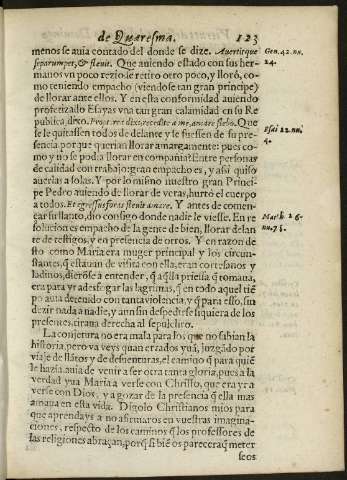 de Quaresma. 123
menos se auia contado del donde se dize. Auertitque
separumper, & fleuit. Que auiendo estado con sus her-
manos vn poco rezio le retiro otro poco, y lloró, co-
mo teniendo empacho (viendose tan gran principe)
de llorar ante ellos. Y en esta conformidad auiendo
profetizado Esayas vna tan gran calamidad en su Re
publica, dixo. Propterea dixi, recedite a me, amarè flebo. Que
se le quitassen todos de delante y le fuessen de su pre-
sencia porque querian llorar amargamente: pues co-
mo y no se podia llorar en compañia? Entre personas
de calidad con trabajo: gran empacho es, y assi quiso
auerlas a solas. Y por lo mismo nuestro gran Princi-
pe Pedro auiendo de llorar de veras, hurtó el cuerpo
a todos. Et egressus foras fleuit amare. Y antes de comen-
çar su llanto, dio consigo donde nadie le viesse. En re
solucion es empacho de la gente de bien, llorar delan
te de testigos, y en presencia de otros. Y en razon de-
sto como Maria era muger principal y los circun-
stantes, q̃ estauan de visita con ella, eran cortesanos y
ladinos, dieróse à entender, q̃ aq̃lla priessa q̃ tomaua,
era para yr a desfogar las lagrimas, q̃ en todo aquel tie-
po auia detenido con tanta violencia, y q̃ para esso, sin
dezir nada a nadie, y aun sin despedirse siquiera de los
presentes, tiraua derecha al sepulcro.
La conjetura no era mala para los que no sabian la
historia, pero va veys quan errados yuã, juzgãdo por
viaje de llãtos y de desuenturas, el camino q̃ para quiẽ
le hazia auia de venir a ser otra tanta gloria, pues a la
verdad yua Maria a verse con Christo, que era yr a
verse con Dios, y a gozar de la presencia q̃ ella mas
amaua en esta vida. Digolo Christianos mios para
que aprendays a no afirmaros en vuestras imagina-
ciones, respeto de los caminos q̃ los professores de
las religiones abraçan, porq̃ si biẽ os pareceraq̃ meter
seos
Gen. 42. nu.
24.
Esai 22. nu.
4.
Matth. 26.
nu. 75.